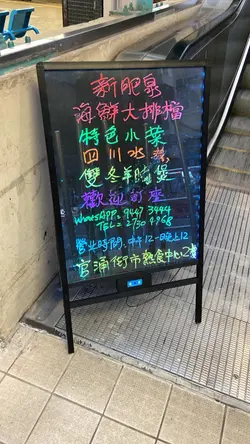 新肥泉
海鮮大排檔
特色小菜
四川水煮
雙冬羊腩煲
歡迎訂座
WhatsAPP: 9447 3444
TEL= 2730 4968
營業時間.中午12-晚上12
官涌街市熟食中心2樓